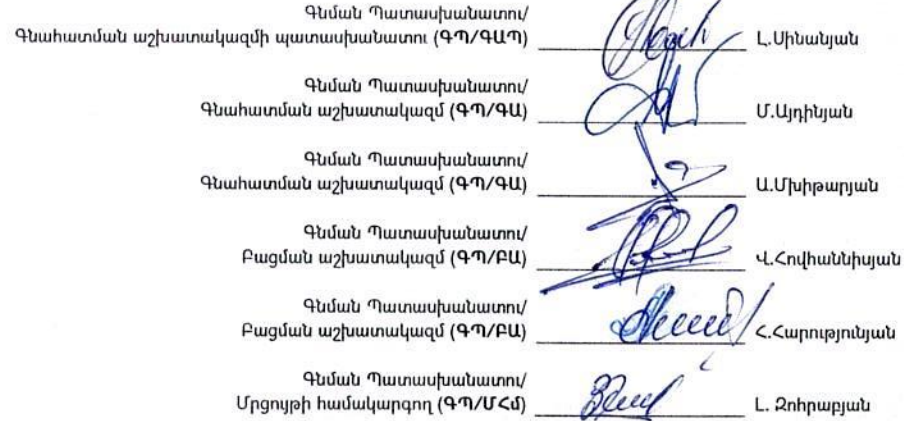 Գնման Պատասխանատու/
Գնահատման աշխատակազմի պատասխանատու (ԳՊ/ԳԱՊ) Լ.Սինանյան
Գնման Պատասխանատու/
Գնահատման աշխատակազմ (ԳՊ/ԳԱ) Մ.Այդինյան
Գնման Պատասխանատու/
Գնահատման աշխատակազմ (ԳՊ/ԳԱ) Ա.Մխիթարյան
Գնման Պատասխանատու/
Բացման աշխատակազմ (ԳՊ/ԲԱ) Վ.Հովհաննիսյան
Գնման Պատասխանատու/
Բացման աշխատակազմ (ԳՊ/ԲԱ) Հ.Հարությունյան
Գնման Պատասխանատու/
Մրցույթի համակարգող (ԳՊ/ՄՀմ) Լ. Զոհրաբյան